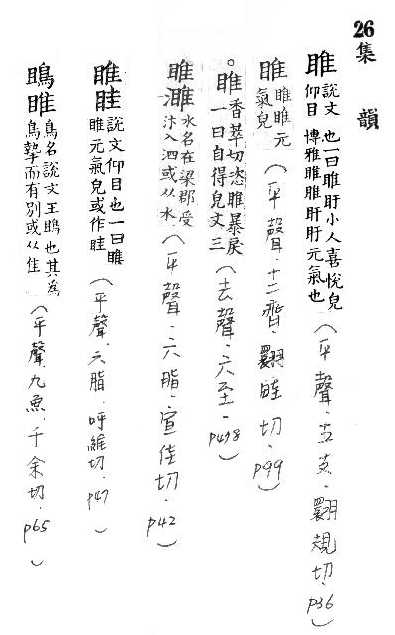 26
集韻
睢 說文仰目也一曰睢盱小人喜悅皃博雅睢睢盱盱元氣也(平聲.五支.翾規切.p36)
睢 睢睢元氣皃(平聲.十二齊.翾畦切.p99)
。睢 香萃切恣睢暴戾一曰自得皃文三(去聲.六至.p498)
睢濉 水名在梁郡受汴入泗或从水(平聲.六脂.宣隹切.p42)
睢眭 說文仰目也一曰睢睢元氣皃或作眭(平聲.六脂.呼維切.p47)
鴡雎 鳥名說文王鴡也其為鳥摯而有別或从隹(平聲.九魚.千余切.p65)